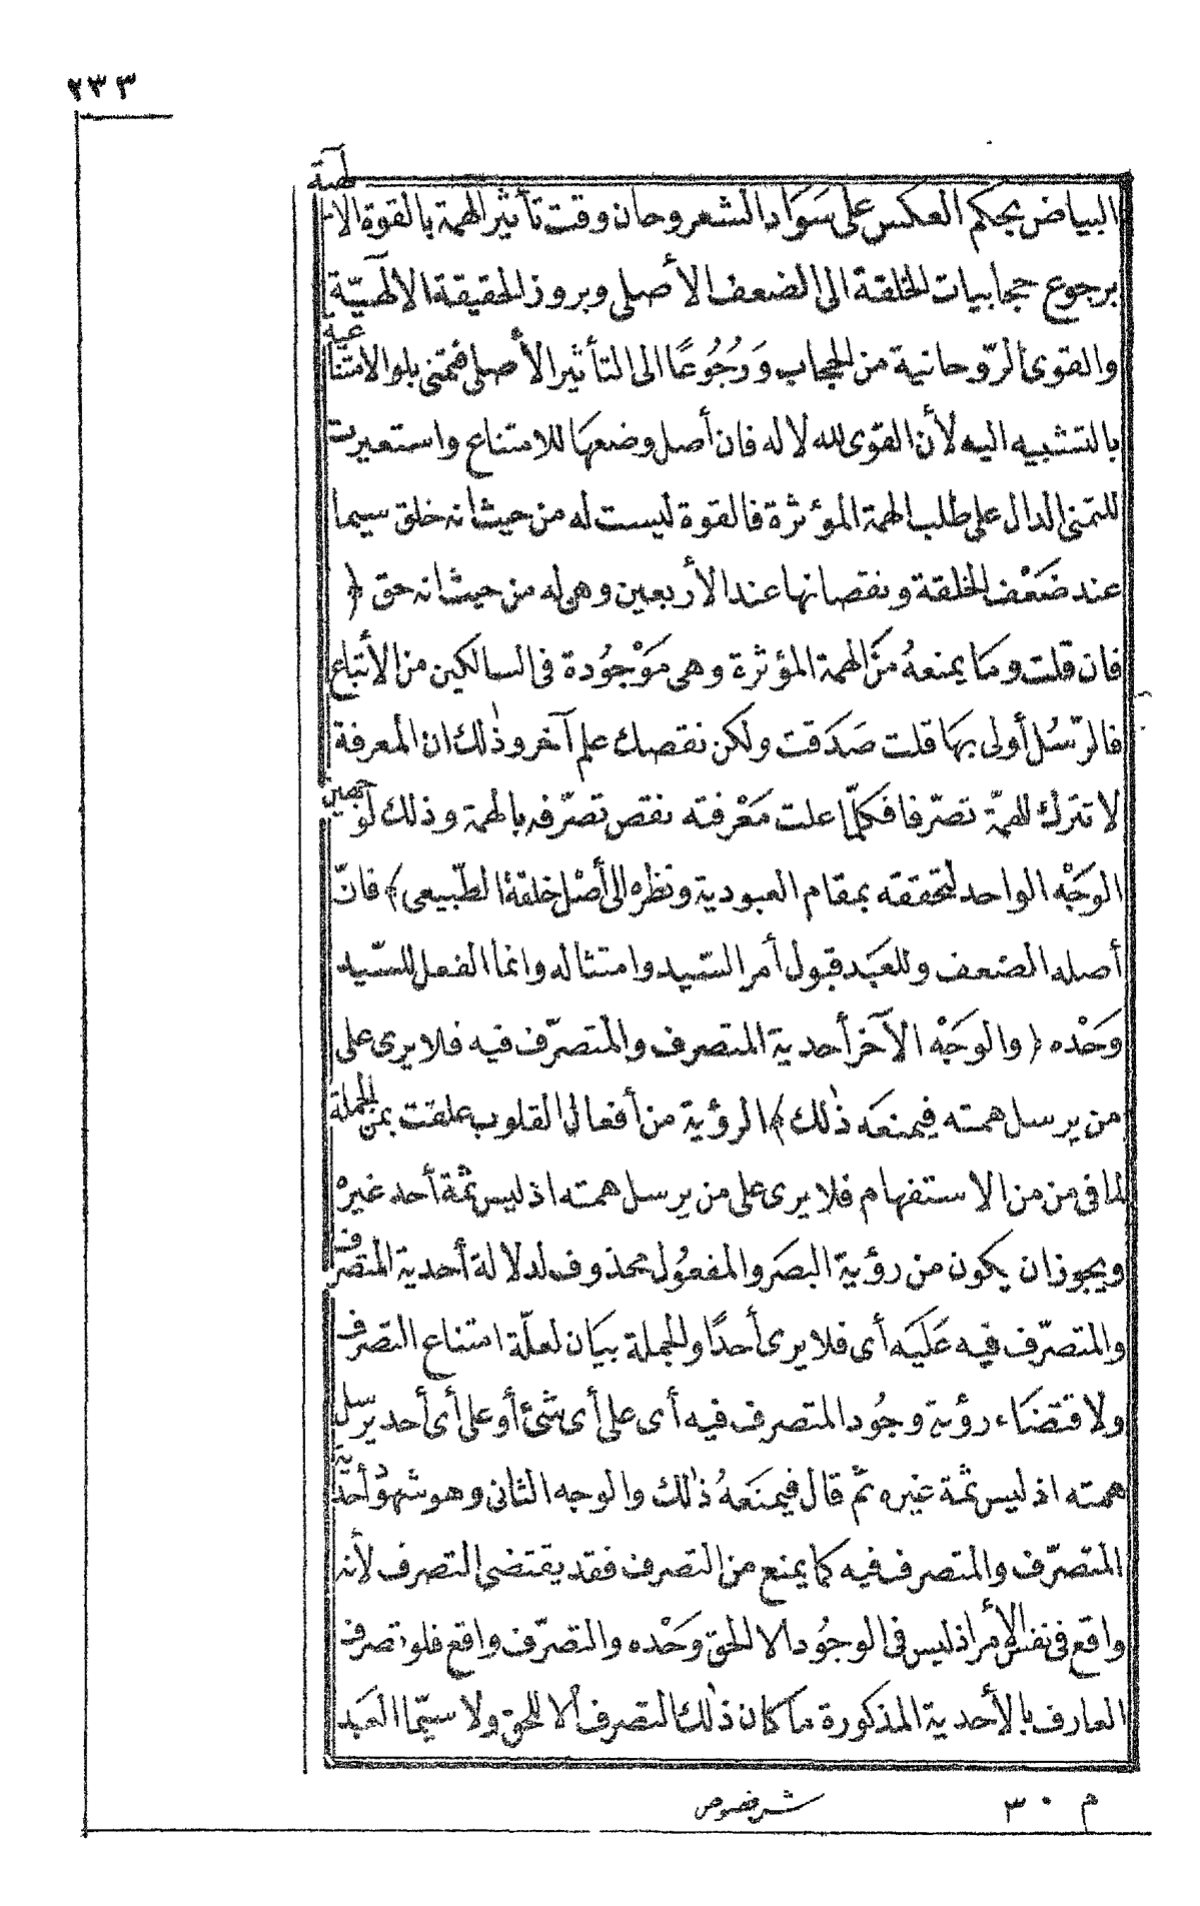 ٢٣٣
البياض بحكم العكس على سَوَاد الشعر وحان وقت تأثير الهمة بالقوة الباطنة
برجوع حجابيات الخلقة الى الضعف الأصلى وبروز الحقيقة الالهيّة
والقوى الرّوحانية من الحجاب وَرُجُوعًا الى التأثير الأصلى فتمنى بلو الامتناعية
بالتشبيه اليه لأن القوى لله لا له فان أصل وضعها للامتناع واستعيرت
للتمنى الدال على طلب الهمة المؤثرة فالقوة ليست له من حيث انه خلق سيما
عند ضَعْف الخلقة ونقصانها عند الأربعين وهى له من حيث انه حق ﴿
فان قلت ومَا يمنعهُ مَن الهمة المؤثرة وهى مَوْجُودة فى السالكين من الأتباع
فالرّسُل أولى بهَا قلت صَدَقت ولكن نقصك علم آخر وذٰلك ان المعرفة
لا تترك للهمّة تصرّفا فكلّما علت مَعْرفته نقص تصرّفه بالهمة وذلك لوجهين
الوَجْه الواحد لتحققه بمقام العبودية ونظره الى أصْل خلقه الطّبيعى ﴾ فانّ
أصله الضعف وللعبَد قبول أمر السّيد وامتثاله وانما الفعل للسّيد
وَحْده ﴿ والوَجْه الآخر أحدية المتصرف والمتصرّف فيه فلا يرى على
من يرسل همته فيمنعَه ذٰلك ﴾ الرؤية من أفعال القلوب علقت بمن الجملة
لما فى من من الاستفهام فلا يرى على من يرسل همته اذ ليس ثمة أحد غيره
ويجوز ان يكون من رؤية البصَر والمفعُول محذوف لدلالة أحدية المتصرف
والمتصرّف فيه عَليَه أى فلا يرى أحدًا والجملة بيَان لعلّة امتناع التصرف
ولاقتضَاء رؤية وجُود المتصرف فيه أى على أى شئ أو على أى أحد يرسل
همته اذ ليس ثمة غيره ثم قال فيمنَعهُ ذٰلك والوجه الثانى وهو شهوُد أحدّية
المتصرّف والمتصرف فيه كما يمنع من التصرف فقد يقتضى التصرف لأنه
واقع فى نفس الأمر اذ ليس فى الوجُود الا الحق وَحْده والتصرّف واقع فلو تصرف
العارف بالأحدية المذكورة مَا كان ذٰلك التصرف الا للحق ولا سيّما العبَد
م ٣٠ شرح فصوص